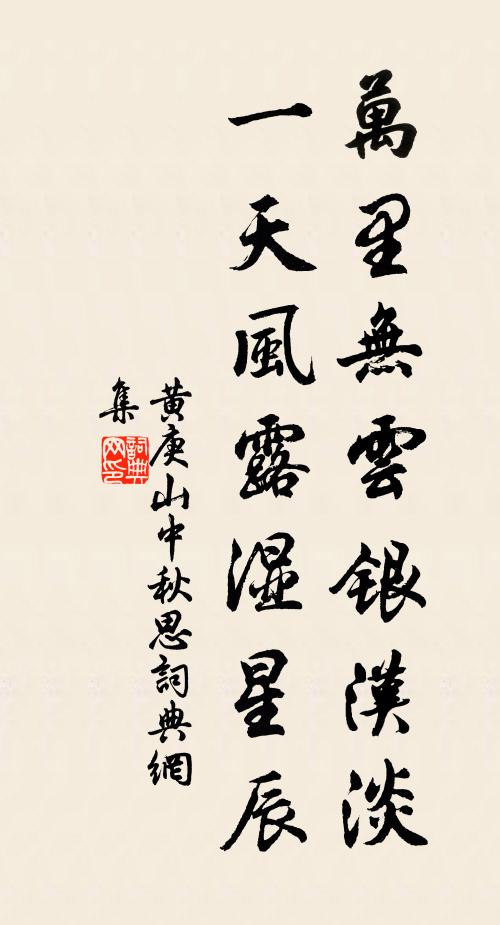 萬里無雲銀漢淡
一天風露湿星辰
黄庚山中秋思詞典網
集
詞典网印